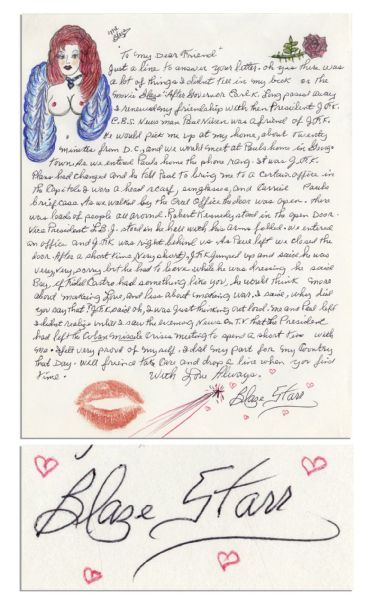 "To My Dear Friend"
Just a line to answer your letter. Oh yes there was
a lot of things I didnt tell in my book or the
movie Blaze. After Governor Earl K. Long passed away
I renewed my friendship with then President J.F.K.
C.B.S. News man Paul Niven was a friend of J.F.K.
He would pick me up at my home, about twenty
minutes from D.C., and we would meet at Pauls home in George
Town. As we entered Pauls home the phone rang. It was J.F.K.
Plans had changed and he told Paul to bring me to a certain office in
the Capitol. I wore a head scarf, sunglasses, and carried Pauls
brief case. As we walked by the Oval Office the door was open. There
was loads of people all around. Robert Kennedy stood in the open door.
Vice President L.B.J. stood in the hall with his arms folded. We entered
an office and J.F.K. was right behind us. As Paul left we closed the
door. After a short time, (very short). J.F.K. jumped up and said he was
very, very sorry but he had to leave. While he was dressing he said
Boy, if Fidel Castro had something like you, he would think more
about making love, and less about making war. I said, why did
you say that? J.F.K. said oh, I was just thinking out loud. Me and Paul left
I didnt realize until I saw the evening News on T.V. that the President
had left the Cuban missile Crises meeting to spend a short time with
me. I felt very proud of myself. I did my part for my Country
that Day. Well friend take care and drop a line when you find
time.
With Love Always.
Blaze Starr
Blaze Starr